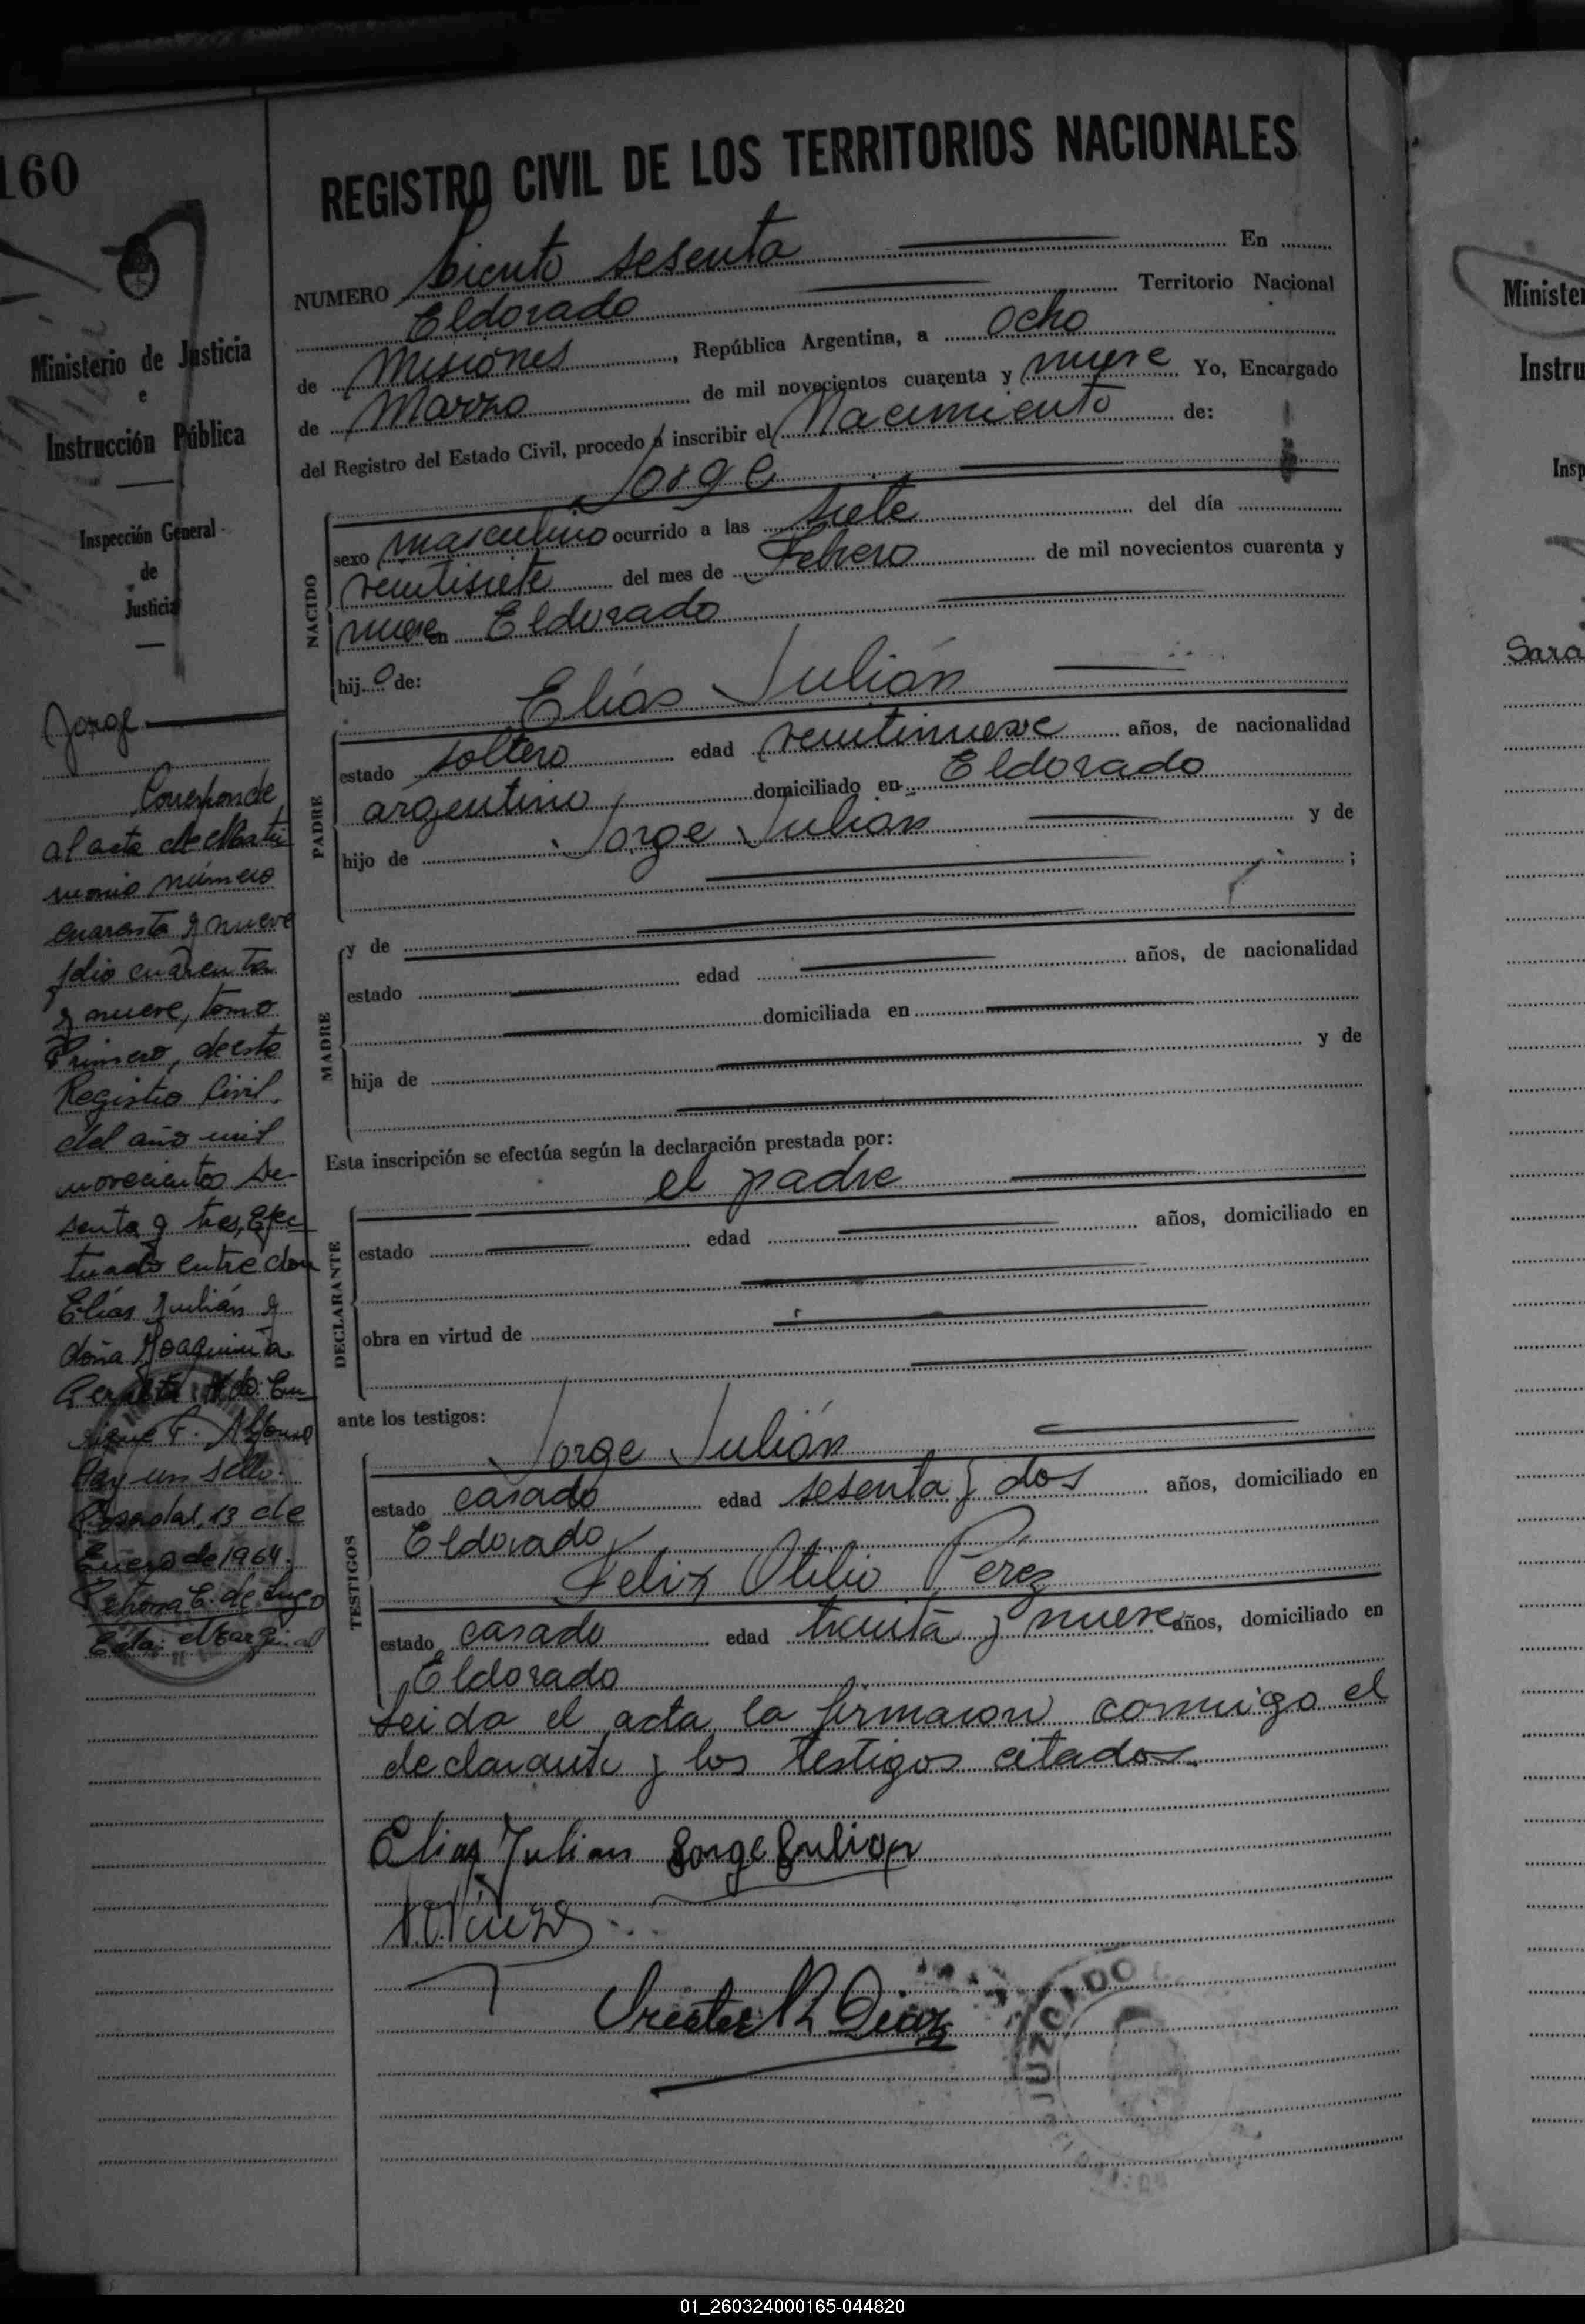 160
REGISTRO CIVIL DE LOS TERRITORIOS NACIONALES
NUMERO Ciento sesenta En
Eldorado Territorio Nacional
de Misiones, República Argentina, a ocho
de Marzo de mil novecientos cuarenta y nueve Yo, Encargado
del Registro del Estado Civil, procedo a inscribir el Nacimiento de:
Jorge
NACIDO
sexo masculino ocurrido a las siete del día
veintisiete del mes de Febrero de mil novecientos cuarenta y
nueve en Eldorado
hijo de:
Elías Julián
PADRE
estado soltero edad veintinueve años, de nacionalidad
argentino domiciliado en Eldorado
hijo de Jorge Julián y de
;
MADRE
y de
estado edad años, de nacionalidad
domiciliada en
hija de y de
Esta inscripción se efectúa según la declaración prestada por:
el padre
DECLARANTE
estado edad años, domiciliado en
obra en virtud de
ante los testigos:
Jorge Julián
TESTIGOS
estado casado edad sesenta y dos años, domiciliado en
Eldorado
Felix Otilio Pérez
estado casado edad treinta y nueve años, domiciliado en
Eldorado
Leida el acta la firmaron conmigo el
declarante y los testigos citados.
Elias Julian Jorge Julian
Diaz
JUZGADO
Ministerio de Justicia
e
Instrucción Pública
Inspección General
de
Justicia
Jorge
Corresponde
al acta de Matri
monio número
cuarenta y nueve
folio cuarenta
y nueve, tomo
Primero, de este
Registro Civil,
del año mil
novecientos se-
senta y tres, Efec
tuado entre don
Elías Julián y
doña Joaquina
Peralta
Alfonso
Hay un sello.
Posadas, 13 de
Enero de 1964.
C. de Lugo
Marginal
Minister
Instru
Insp
Sara
01_260324000165-044820